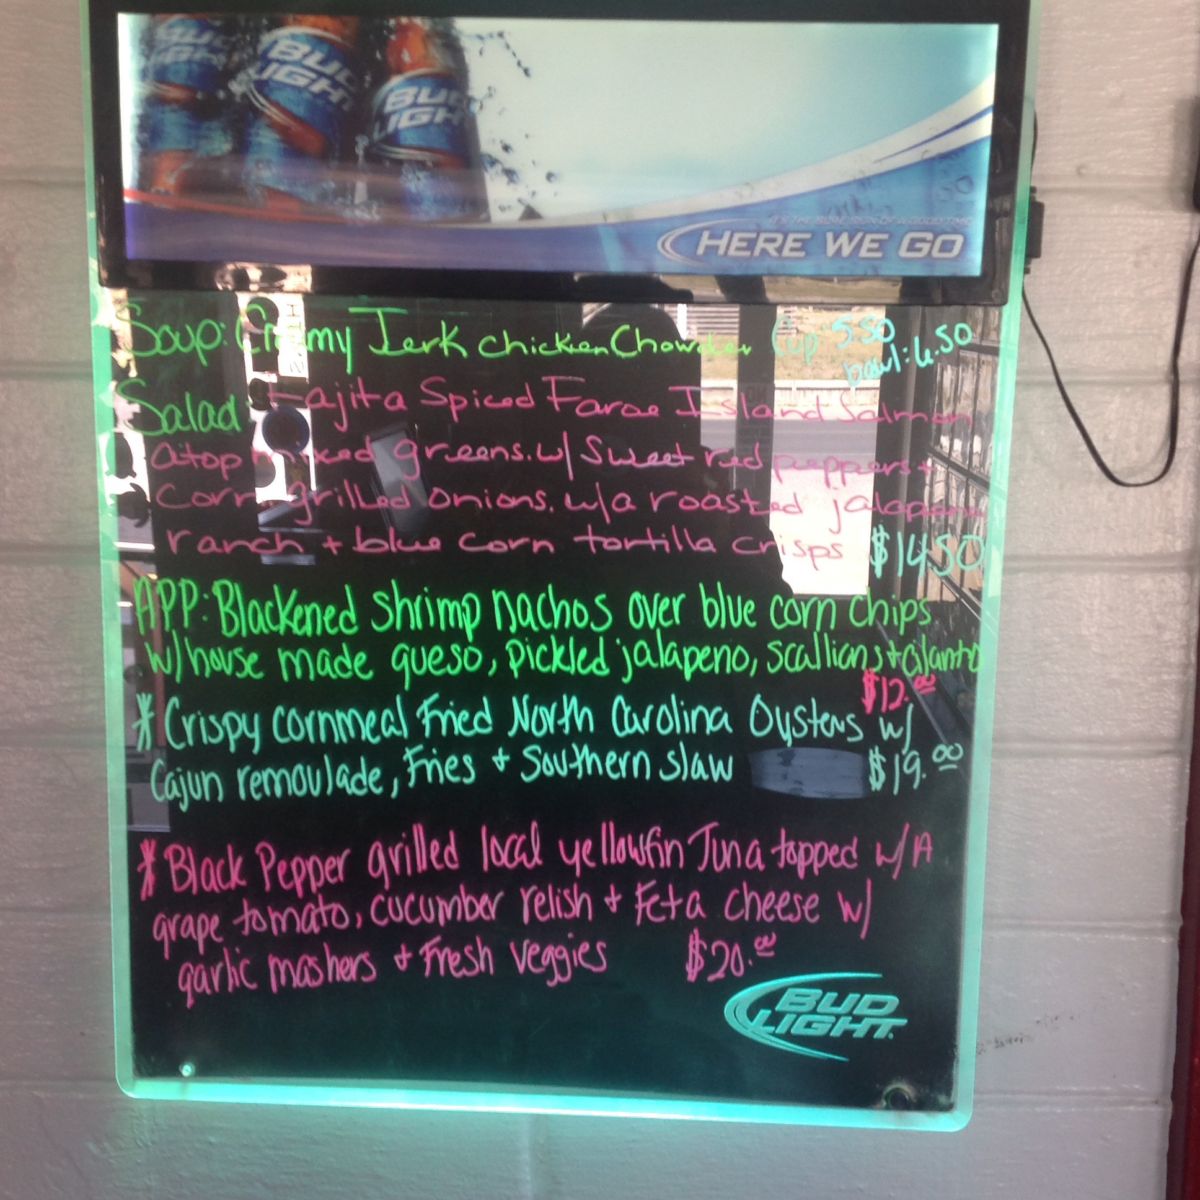 BUD LIGHT
BUD LIGHT
BUD LIGHT
HERE WE GO
Soup: Creamy Jerk Chicken Chowder Cup: 5.50
bowl: 6.50
Salad: Fajita Spiced Faroe Island Salmon
atop mixed greens w/ Sweet red peppers +
Corn, grilled onions, w/a roasted jalapeno
ranch + blue corn tortilla crisps $14.50
APP: Blackened shrimp nachos over blue corn chips
w/ house made queso, pickled jalapeno, scallions, + cilantro
$12.00
* Crispy cornmeal Fried North Carolina Oysters w/
Cajun remoulade, Fries + Southern slaw $19.00
* Black Pepper grilled local yellowfin Tuna topped w/A
grape tomato, cucumber relish + Feta cheese w/
garlic mashers + Fresh veggies $20.00
BUD LIGHT